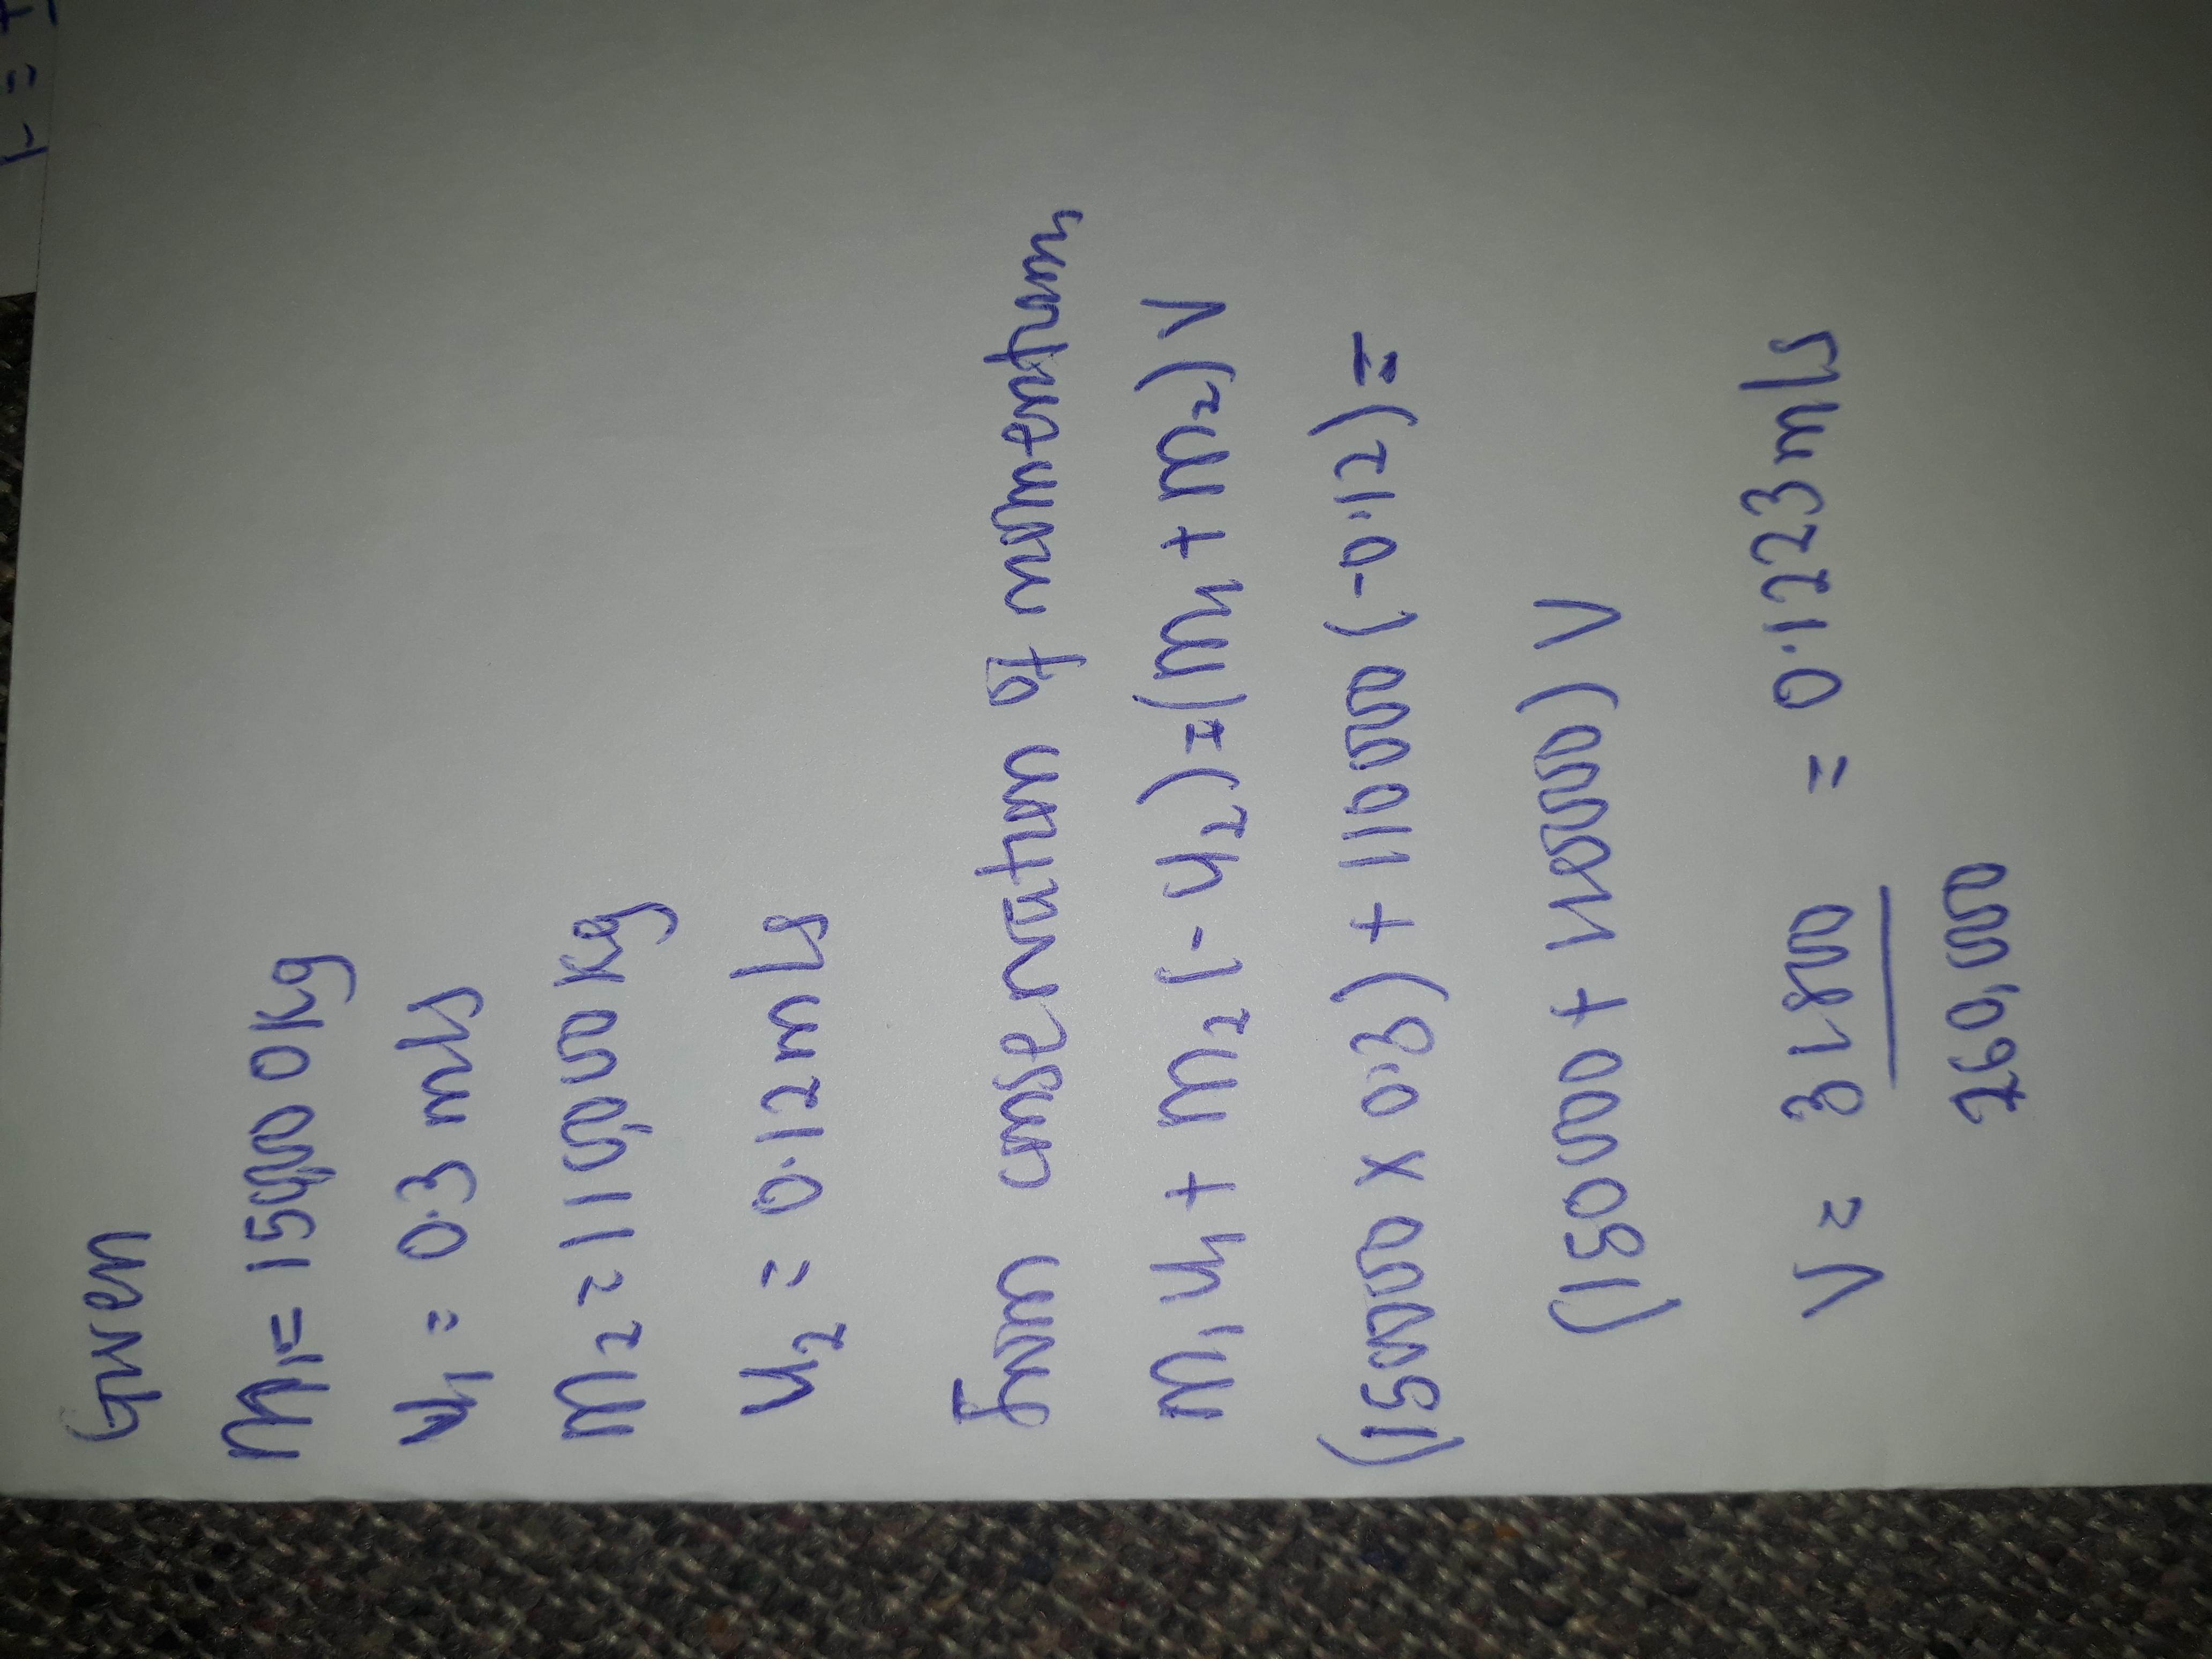 Given
m1 = 150,000kg
u1 = 0.3 m/s
m2 = 110,000kg
u2 = 0.12m/s
From conservation of momentum
m1u1 + m2(-u2)=(m1+m2)V
(150000 x 0.3) + 110000(-0.12) =
(150000 + 110000)V
V = 31800 = 0.1223m/s
260,000